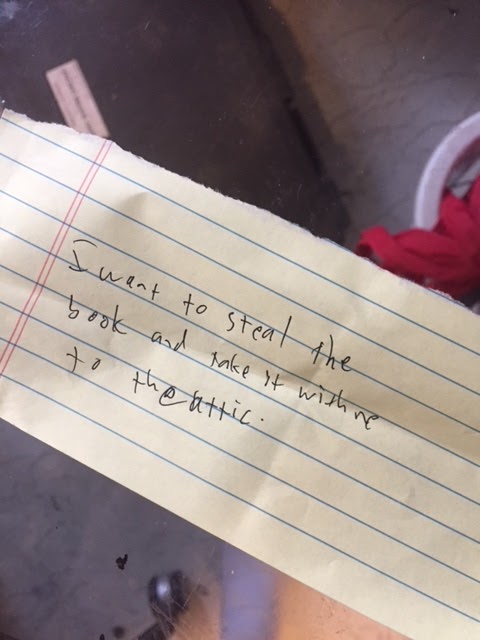 I want to steal the
book and take it with me
to the attic.